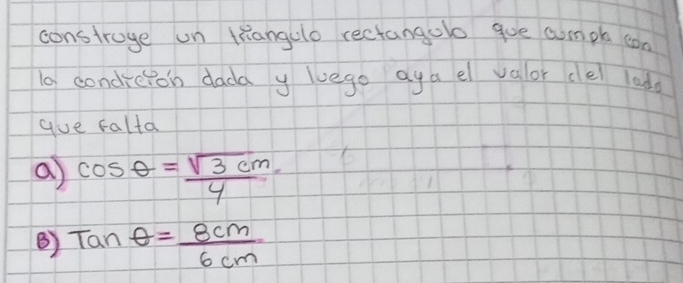 construye un triangulo rectangulo que cumpla con
la condición dada y luego aya el valor del lado
que falta
a) cos θ = √3 cm / 4
B) Tan θ = 8cm / 6 cm